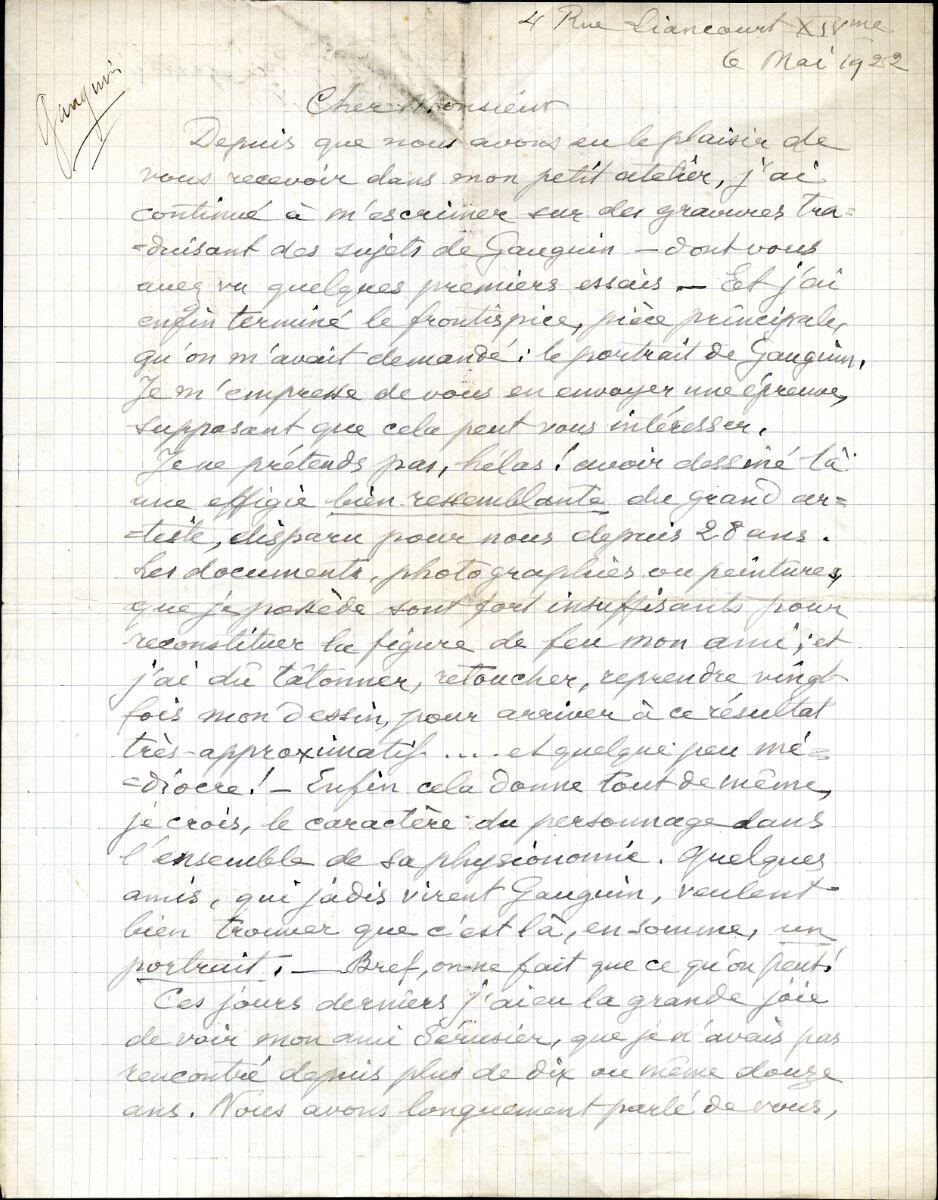 4 Rue Liancourt XIVme
6 Mai 1922
Gauguin
Cher Monsieur
Depuis que nous avons eu le plaisir de
vous recevoir dans mon petit atelier, j'ai
continué à m'escrimer sur des gravures tra=
=duisant des sujets de Gauguin — dont vous
avez vu quelques premiers essais. — Et j'ai
enfin terminé le frontispice, pièce principale,
qu'on m'avait demandé : le portrait de Gauguin.
Je m'empresse de vous en envoyer une épreuve,
supposant que cela peut vous intéresser.
Je ne prétends pas, hélas ! avoir dessiné là
une effigie bien ressemblante du grand ar=
=tiste, disparu pour nous depuis 28 ans.
Les documents, photographies ou peintures,
que je possède sont fort insuffisants pour
reconstituer la figure de feu mon ami ; et
j'ai dû tâtonner, retoucher, reprendre vingt
fois mon dessin, pour arriver à ce résultat
très-approximatif .... et quelque peu mé=
=diocre ! — Enfin cela donne tout de même,
je crois, le caractère du personnage dans
l'ensemble de sa physionomie. Quelques
amis, qui jadis virent Gauguin, veulent
bien trouver que c'est là, en somme, un
portrait. — Bref, on ne fait que ce qu'on peut !
Ces jours derniers j'ai eu la grande joie
de voir mon ami Sérusier, que je n'avais pas
rencontré depuis plus de dix ou même douze
ans. Nous avons longuement parlé de vous,